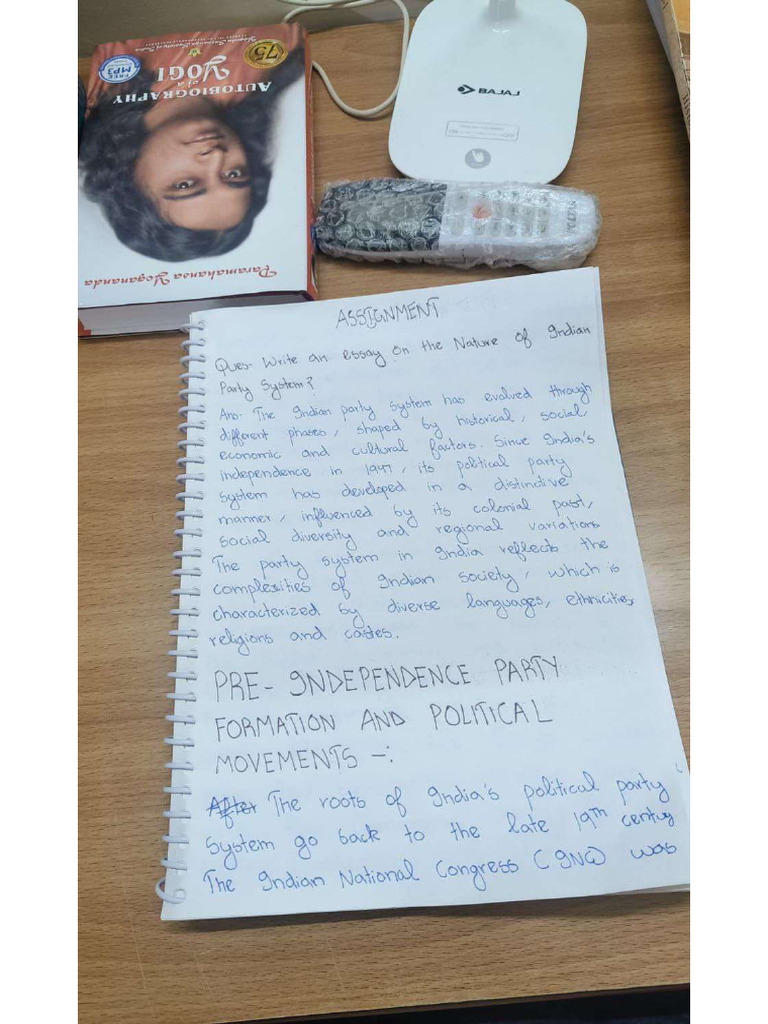 Yogoda Satsanga Society of India
75
FREE MP3
AUTOBIOGRAPHY
of a
YOGI
Paramahansa Yogananda
LALAB
ASSIGNMENT
Ques- Write an essay on the Nature of Indian
Party System?
Ans- The Indian party system has evolved through
different phases, shaped by historical, social,
economic and cultural factors. Since India's
independence in 1947, its political party
system has developed in a distinctive
manner, influenced by its colonial past,
social diversity and regional variations
The party system in India reflects the
complexities of Indian society, which is
characterized by diverse languages, ethnicities,
religions and castes.
PRE- INDEPENDENCE PARTY
FORMATION AND POLITICAL
MOVEMENTS -:
After The roots of India's political party
system go back to the late 19th century
The Indian National Congress (INC) was